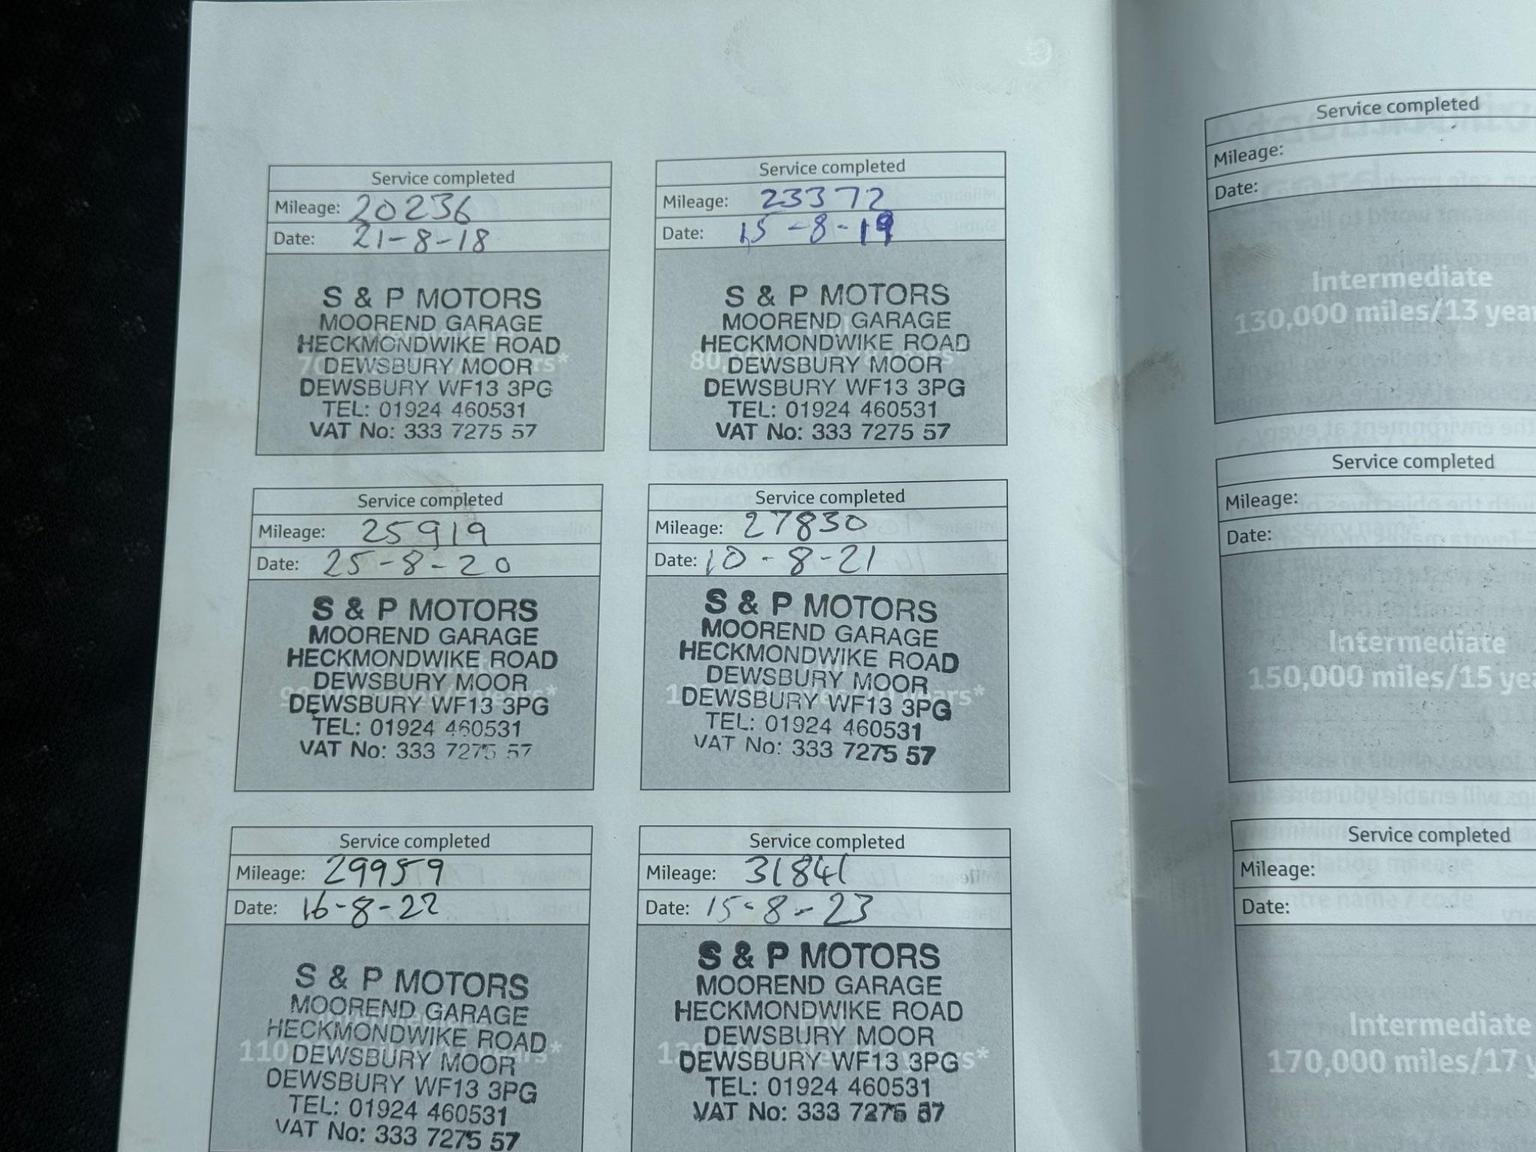 Service completed
Mileage: 20236
Date: 21-8-18
S & P MOTORS
MOOREND GARAGE
HECKMONDWIKE ROAD
DEWSBURY MOOR
DEWSBURY WF13 3PG
TEL: 01924 460531
VAT No: 333 7275 57
Service completed
Mileage: 23372
Date: 15-8-19
S & P MOTORS
MOOREND GARAGE
HECKMONDWIKE ROAD
DEWSBURY MOOR
DEWSBURY WF13 3PG
TEL: 01924 460531
VAT No: 333 7275 57
Service completed
Mileage: 25919
Date: 25-8-20
S & P MOTORS
MOOREND GARAGE
HECKMONDWIKE ROAD
DEWSBURY MOOR
DEWSBURY WF13 3PG
TEL: 01924 460531
VAT No: 333 7275 57
Service completed
Mileage: 27830
Date: 10-8-21
S & P MOTORS
MOOREND GARAGE
HECKMONDWIKE ROAD
DEWSBURY MOOR
DEWSBURY WF13 3PG
TEL: 01924 460531
VAT No: 333 7275 57
Service completed
Mileage: 29959
Date: 16-8-22
S & P MOTORS
MOOREND GARAGE
HECKMONDWIKE ROAD
DEWSBURY MOOR
DEWSBURY WF13 3PG
TEL: 01924 460531
VAT No: 333 7275 57
Service completed
Mileage: 31841
Date: 15-8-23
S & P MOTORS
MOOREND GARAGE
HECKMONDWIKE ROAD
DEWSBURY MOOR
DEWSBURY WF13 3PG
TEL: 01924 460531
VAT No: 333 7275 57
Service completed
Mileage:
Date:
Intermediate
130,000 miles/13 yea
Service completed
Mileage:
Date:
Intermediate
150,000 miles/15 yea
Service completed
Mileage:
Date:
Intermediate
170,000 miles/17 y